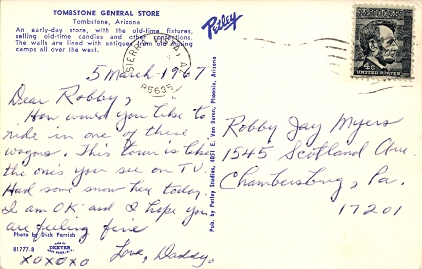 TOMBSTONE GENERAL STORE
Tombstone, Arizona
An early-day store, with the old-time fixtures,
selling old-time candies and other confections.
The walls are lined with antiques from old mining
camps all over the west.
Petley
SIERRA VISTA, AZ
85635
4¢
UNITED STATES
5 March 1967
Dear Robby,
How would you like to
ride in one of these
wagons. This town is like
the ones you see on TV.
Had some snow here today.
I am OK and I hope you
are feeling fine
Love, Daddy.
xoxoxo
Photo by Dick Parrish
81777-B
DEXTER
Pub. by Petley Studios, 4051 E. Van Buren, Phoenix, Arizona
Robby Jay Myers
1545 Scotland Ave.
Chambersburg, Pa.
17201